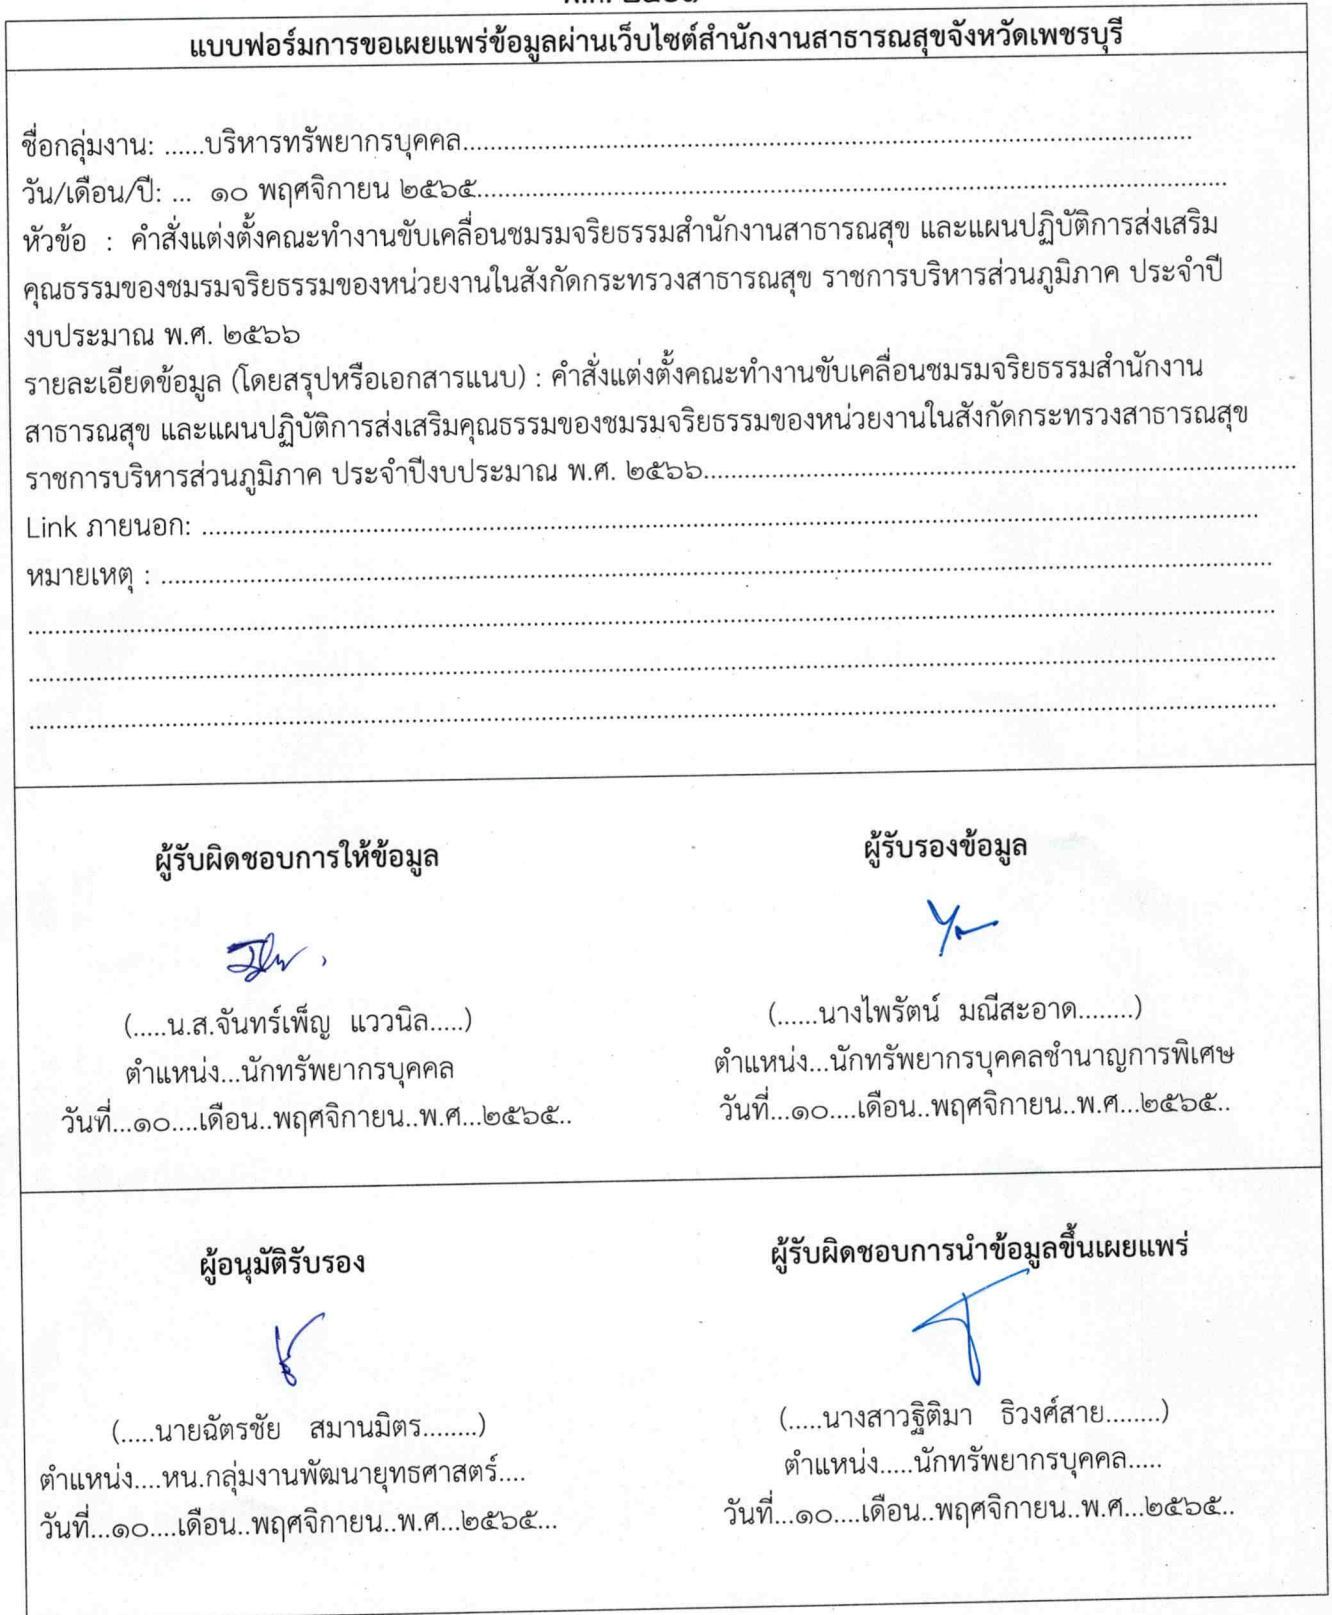 แบบฟอร์มการขอเผยแพร่ข้อมูลผ่านเว็บไซต์สำนักงานสาธารณสุขจังหวัดเพชรบุรี
ชื่อกลุ่มงาน: ......บริหารทรัพยากรบุคคล......
วัน/เดือน/ปี: ... ๑๐ พฤศจิกายน ๒๕๖๕......
หัวข้อ : คำสั่งแต่งตั้งคณะทำงานขับเคลื่อนชมรมจริยธรรมสำนักงานสาธารณสุข และแผนปฏิบัติการส่งเสริม
คุณธรรมของชมรมจริยธรรมของหน่วยงานในสังกัดกระทรวงสาธารณสุข ราชการบริหารส่วนภูมิภาค ประจำปี
งบประมาณ พ.ศ. ๒๕๖๖
รายละเอียดข้อมูล (โดยสรุปหรือเอกสารแนบ) : คำสั่งแต่งตั้งคณะทำงานขับเคลื่อนชมรมจริยธรรมสำนักงาน
สาธารณสุข และแผนปฏิบัติการส่งเสริมคุณธรรมของชมรมจริยธรรมของหน่วยงานในสังกัดกระทรวงสาธารณสุข
ราชการบริหารส่วนภูมิภาค ประจำปีงบประมาณ พ.ศ. ๒๕๖๖......
Link ภายนอก: ......
หมายเหตุ : ......
ผู้รับผิดชอบการให้ข้อมูล
(.....น.ส.จันทร์เพ็ญ แววนิล.....)
ตำแหน่ง...นักทรัพยากรบุคคล
วันที่...๑๐....เดือน..พฤศจิกายน..พ.ศ...๒๕๖๕..
ผู้รับรองข้อมูล
(......นางไพรัตน์ มณีสะอาด........)
ตำแหน่ง...นักทรัพยากรบุคคลชำนาญการพิเศษ
วันที่...๑๐....เดือน..พฤศจิกายน..พ.ศ...๒๕๖๕..
ผู้อนุมัติรับรอง
(.....นายฉัตรชัย สมานมิตร........)
ตำแหน่ง....หน.กลุ่มงานพัฒนายุทธศาสตร์....
วันที่...๑๐....เดือน..พฤศจิกายน..พ.ศ...๒๕๖๕...
ผู้รับผิดชอบการนำข้อมูลขึ้นเผยแพร่
(.....นางสาวฐิติมา ธิวงศ์สาย........)
ตำแหน่ง.....นักทรัพยากรบุคคล.....
วันที่...๑๐....เดือน..พฤศจิกายน..พ.ศ...๒๕๖๕..